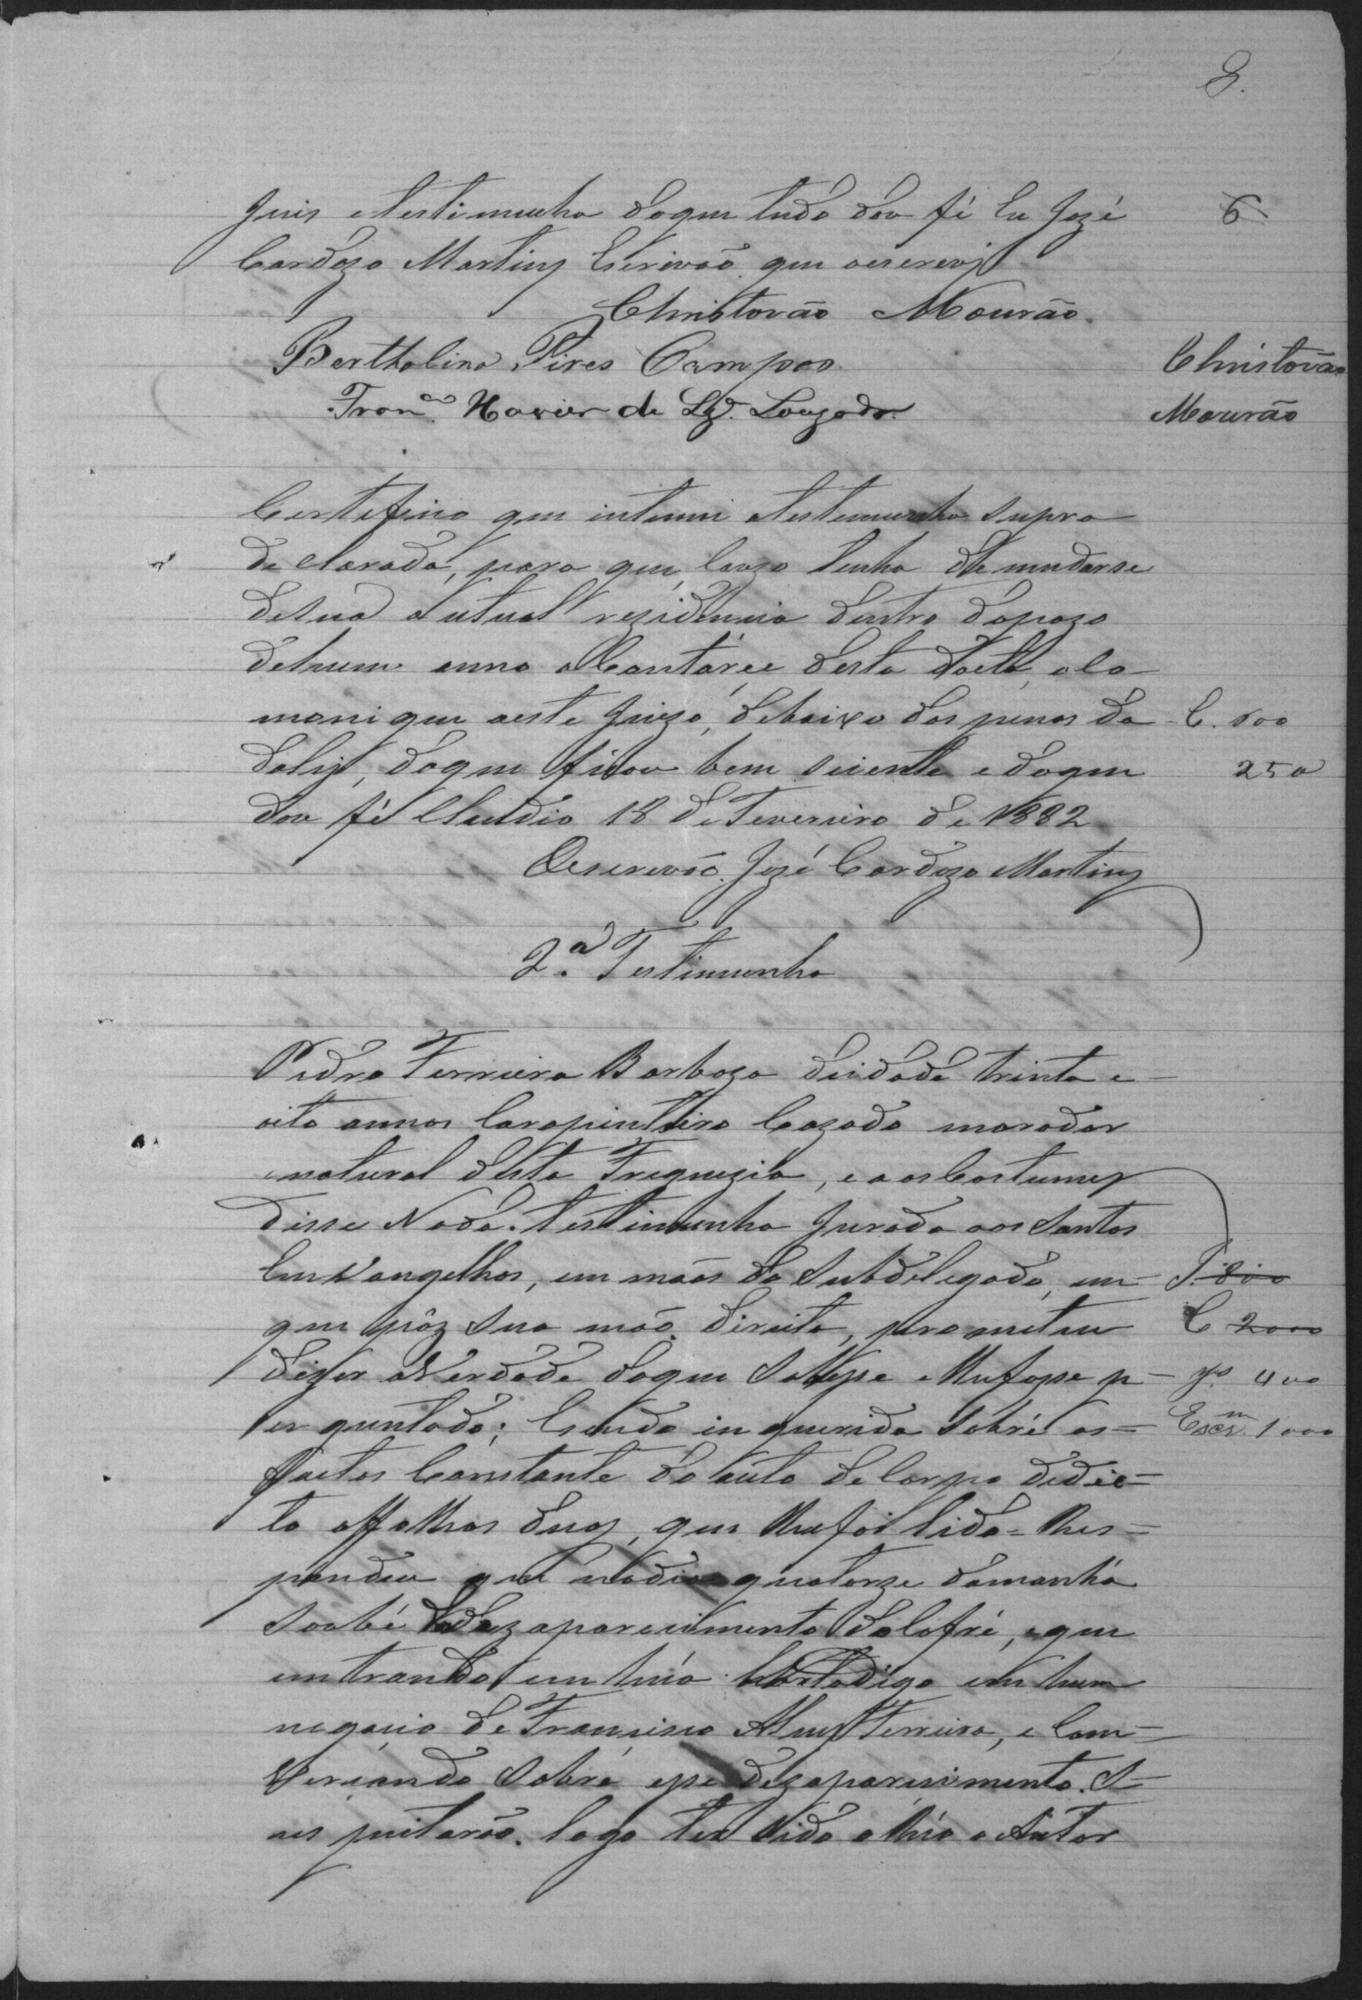 8.
Juis e testimunha doque tudo dou fé Eu José
Cardozo Martins Escrivão que o escrevi
6
Christovão Mourão.
Bertholino Pires Campos
Christovão
Fran.co Xavier de Louzada.
Mourão
Certifico que intimei a testemunha supra
declarada, para que, cazo tenha de mudarse
de sua autual rezidencia dentro do prazo
de hum anno a Contar ce desta data, o co-
monique a este Juizo, debaixo das penas da
C. 500
da lei, do que ficou bem siente e do que
250
dou fé Claudio 18 de Fevereiro de 1882
O escrivão José Cardozo Martins
2.a Testimunha
Pedro Ferreira Barboza de idade trinta e
oito annos Carapinteiro Cazado morador
e natural desta Freguezia, e aos Costumes
disse Nada. testimunha Jurada aos Santos
Envangelhos, em mãos do Subdelegado, em
J. 800
que pôz sua mão direita, prometeu
C 2000
dizer a Verdade doque Soubesse e lhe fosse p-
400
erguntado; E sendo inquerida Sobre os=
Escr.m 1000
factos Constante do auto de Corpo dedic=
to affolhas duas, que lhe foi lido = Res=
pondeu que no dia quatorze da manhã
soube do dezaparecimento do Cofre, e que
entrando em hum
negocio de Francisco Alves Ferreira, e Com=
Versando Sobre esse dezaparecimento. S=
us peitarão. logo ter Sido o Réo o Autor